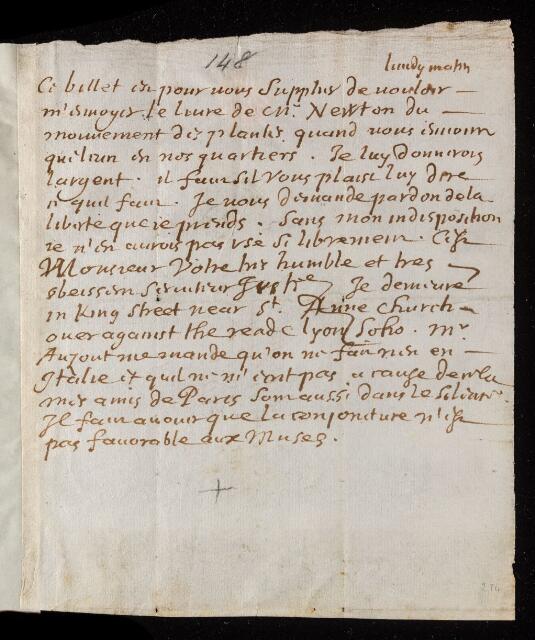 148
lundy matin
Ce billet est pour vous supplier de vouloir
m'envoyer le livre de Mr. Newton du
mouvement des planetes quand vous envoirrez
quelcun en nos quartiers. Je luy donnerois
l'argent. il faut s'il vous plaist luy dire
ce quil faut. Je vous demande pardon de la
liberté que je prends. Sans mon indisposition
je n'en aurois pas usé si librement. C'est
Monsieur Votre tres humble et tres
obeissant serviteur Justel Je demeure
in King street near St. Anne church
over against the reade lyon Soho. Mr
Auzout me mande qu'on ne fait rien en
Italie et quil ne m'ecrit pas a cause de cela
mes amis de Paris sont aussi dans le silence.
Il faut avouer que la conjoncture n'est
pas favorable aux Muses.